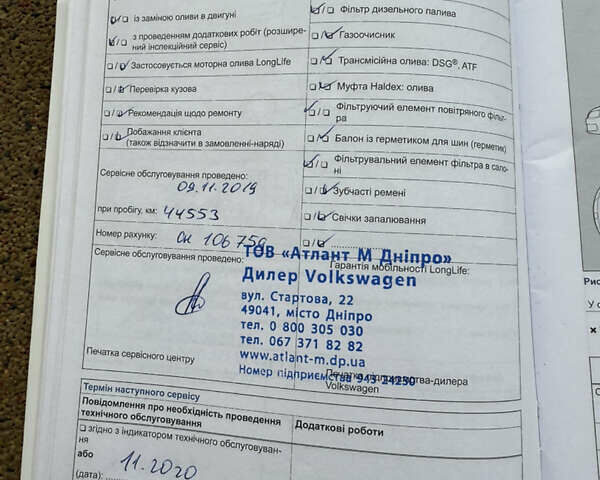 із заміною оливи в двигуні
з проведенням додаткових робіт (розшире-
ний інспекційний сервіс)
Застосовується моторна олива LongLife
Перевірка кузова
Рекомендація щодо ремонту
Побажання клієнта
(також відзначити в замовленні-наряді)
Сервісне обслуговування проведено:
09.11.2019
при пробігу, км: 44553
Номер рахунку: Он 106759
Сервісне обслуговування проведено:
Печатка сервісного центру
Фільтр дизельного палива
Газоочисник
Трансмісійна олива: DSG®, ATF
Муфта Haldex: олива
Фільтруючий елемент повітряного фільт-
ра
Балон із герметиком для шин (герметик)
Фільтрувальний елемент фільтра в сало-
ні
Зубчасті ремені
Свічки запалювання
Гарантія мобільності LongLife:
ТОВ «Атлант М Дніпро»
Дилер Volkswagen
вул. Стартова, 22
49041, місто Дніпро
тел. 0 800 305 030
тел. 067 371 82 82
www.atlant-m.dp.ua
Номер підприємства 943-24250
Volkswagen
Термін наступного сервісу
Повідомлення про необхідність проведення
технічного обслуговування
згідно з індикатором технічного обслуговуван-
ня
або
(дата): 11.2020
Додаткові роботи
Рис
У с